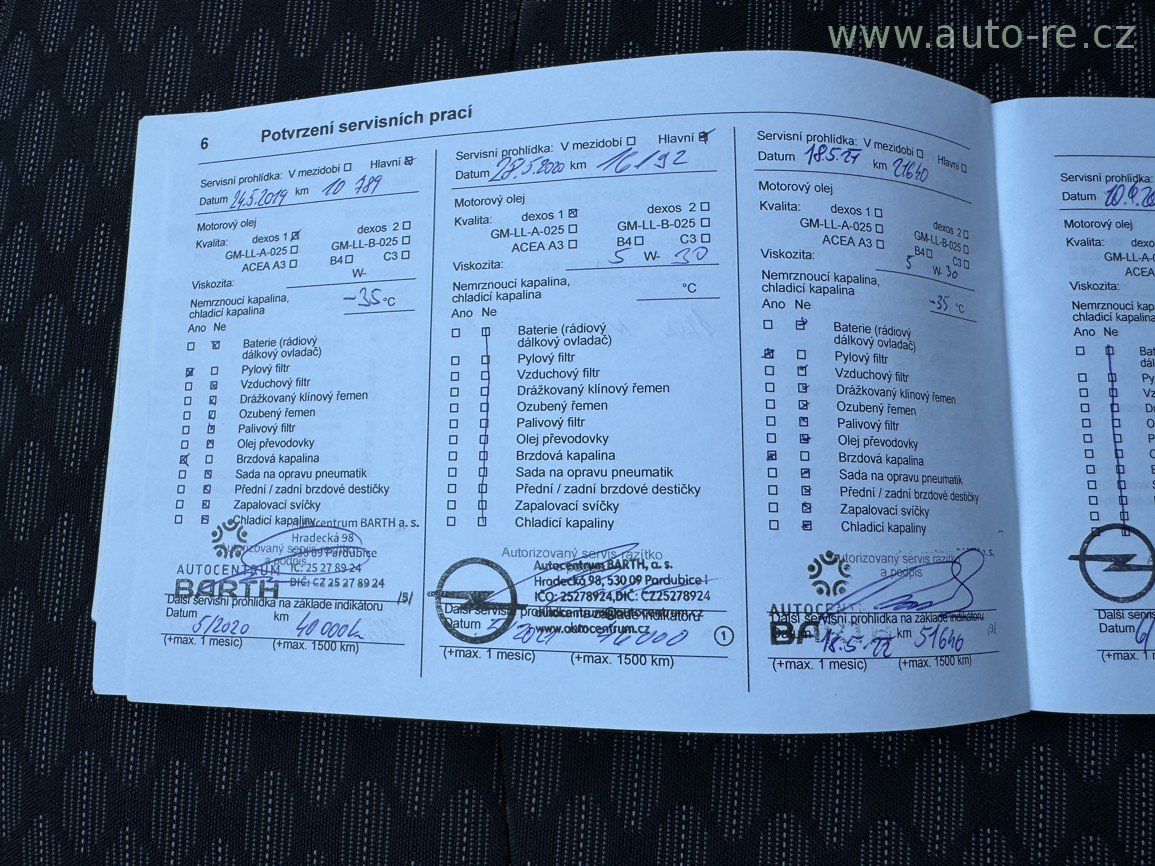 www.auto-re.cz
6 Potvrzení servisních prací
Servisní prohlídka: V mezidobí Hlavní
Datum 24.5.2019 km 10 789
Motorový olej
Kvalita: dexos 1 dexos 2
GM-LL-A-025 GM-LL-B-025
ACEA A3 B4 C3
Viskozita: W-
Nemrznoucí kapalina, chladicí kapalina -35 °C
Ano Ne
Baterie (rádiový
dálkový ovladač)
Pylový filtr
Vzduchový filtr
Drážkovaný klínový řemen
Ozubený řemen
Palivový filtr
Olej převodovky
Brzdová kapalina
Sada na opravu pneumatik
Přední / zadní brzdové destičky
Zapalovací svíčky
Chladicí kapaliny
Autocentrum BARTH a. s.
Hradecká 98
530 09 Pardubice
IČ: 25 27 89 24
DIČ: CZ 25 27 89 24
AUTOCENTRUM
BARTH
/9/
Další servisní prohlídka na základě indikátoru
Datum 5/2020 km 40 000 km
(+max. 1 měsíc) (+max. 1500 km)
Servisní prohlídka: V mezidobí Hlavní
Datum 28.5.2020 km 16192
Motorový olej
Kvalita: dexos 1 dexos 2
GM-LL-A-025 GM-LL-B-025
ACEA A3 B4 C3
Viskozita: 5 W- 30
Nemrznoucí kapalina,
chladicí kapalina °C
Ano Ne
Baterie (rádiový
dálkový ovladač)
Pylový filtr
Vzduchový filtr
Drážkovaný klínový řemen
Ozubený řemen
Palivový filtr
Olej převodovky
Brzdová kapalina
Sada na opravu pneumatik
Přední / zadní brzdové destičky
Zapalovací svíčky
Chladicí kapaliny
Autorizovaný servis razítko
Autocentrum BARTH, a. s.
Hradecká 98, 530 09 Pardubice
IČO: 25278924, DIČ: CZ25278924
www.autocentrum.cz
Datum
1
(+max. 1 měsíc) (+max. 1500 km)
Servisní prohlídka: V mezidobí Hlavní
Datum 18.5.21 km 21640
Motorový olej
Kvalita: dexos 1 dexos 2
GM-LL-A-025 GM-LL-B-025
ACEA A3 B4 C3
Viskozita: 5 W- 30
Nemrznoucí kapalina,
chladicí kapalina -35 °C
Ano Ne
Baterie (rádiový
dálkový ovladač)
Pylový filtr
Vzduchový filtr
Drážkovaný klínový řemen
Ozubený řemen
Palivový filtr
Olej převodovky
Brzdová kapalina
Sada na opravu pneumatik
Přední / zadní brzdové destičky
Zapalovací svíčky
Chladicí kapaliny
Autorizovaný servis razítko
a podpis
Další servisní prohlídka na základě indikátoru
18.5.22 km 51640
(+max. 1 měsíc) (+max. 1500 km)
Servisní prohlídka:
Datum
Motorový olej
Kvalita:
GM-LL-A
ACEA
Viskozita:
Nemrznoucí kap
chladicí kapalina
Ano Ne
Další servis
Datum 6/
(+max. 1